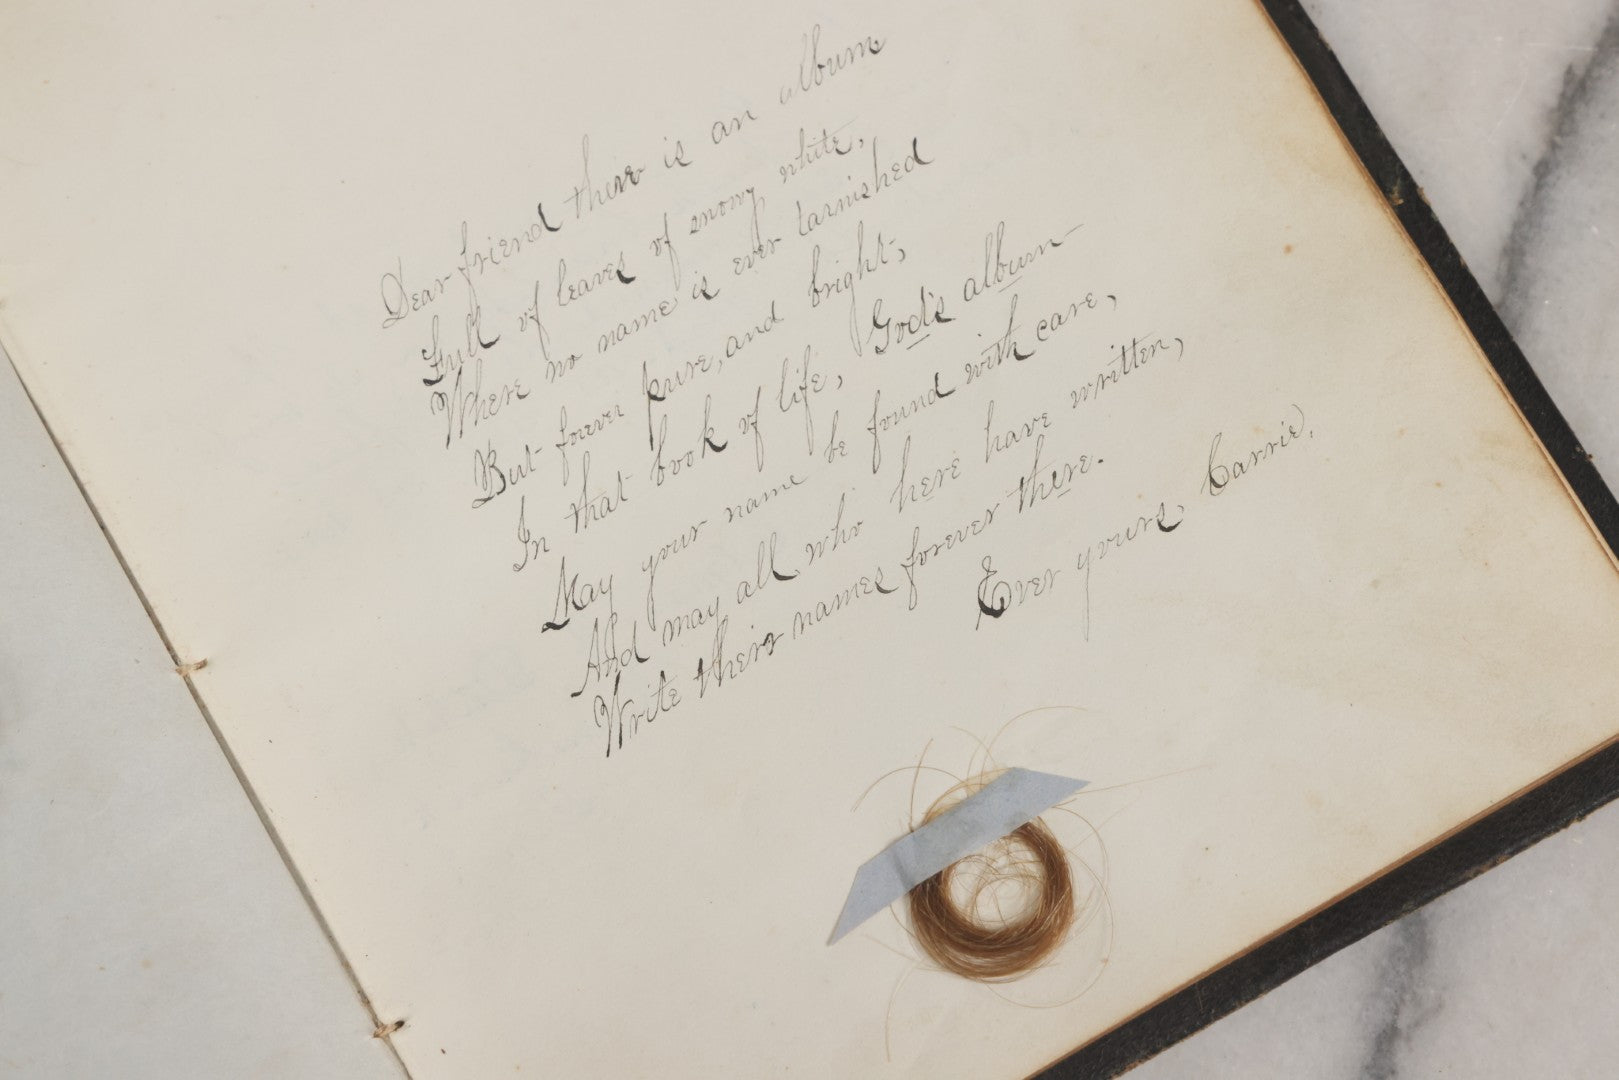 Dear friend there is an album
Full of leaves of snowy white,
Where no name is ever tarnished
But forever pure, and bright,
In that book of life, God's album
May your name be found with care,
And may all who here have written,
Write their names forever there.
Ever yours, Carrie,